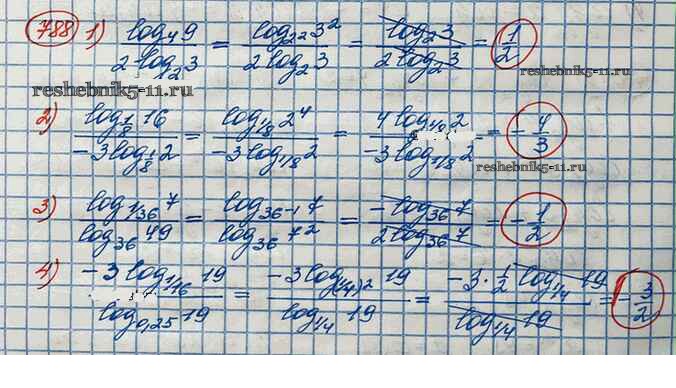 788 1) log₄9 / 2log₂3 = log₂²3² / 2log₂3 = log₂3 / 2log₂3 = 1/2
reshebnik5-11.ru
reshebnik5-11.ru
2) log₁/₈16 / -3log₁/₈2 = log₁/₈2⁴ / -3log₁/₈2 = 4log₁/₈2 / -3log₁/₈2 = -4/3
reshebnik5-11.ru
3) log₁/₃₆7 / log₃₆49 = log₃₆₋₁7 / log₃₆7² = -log₃₆7 / 2log₃₆7 = -1/2
4) -3log₁/₁₆19 / log₀,₂₅19 = -3log₍₁/₄₎²19 / log₁/₄19 = -3·1/2 log₁/₄19 / log₁/₄19 = -3/2